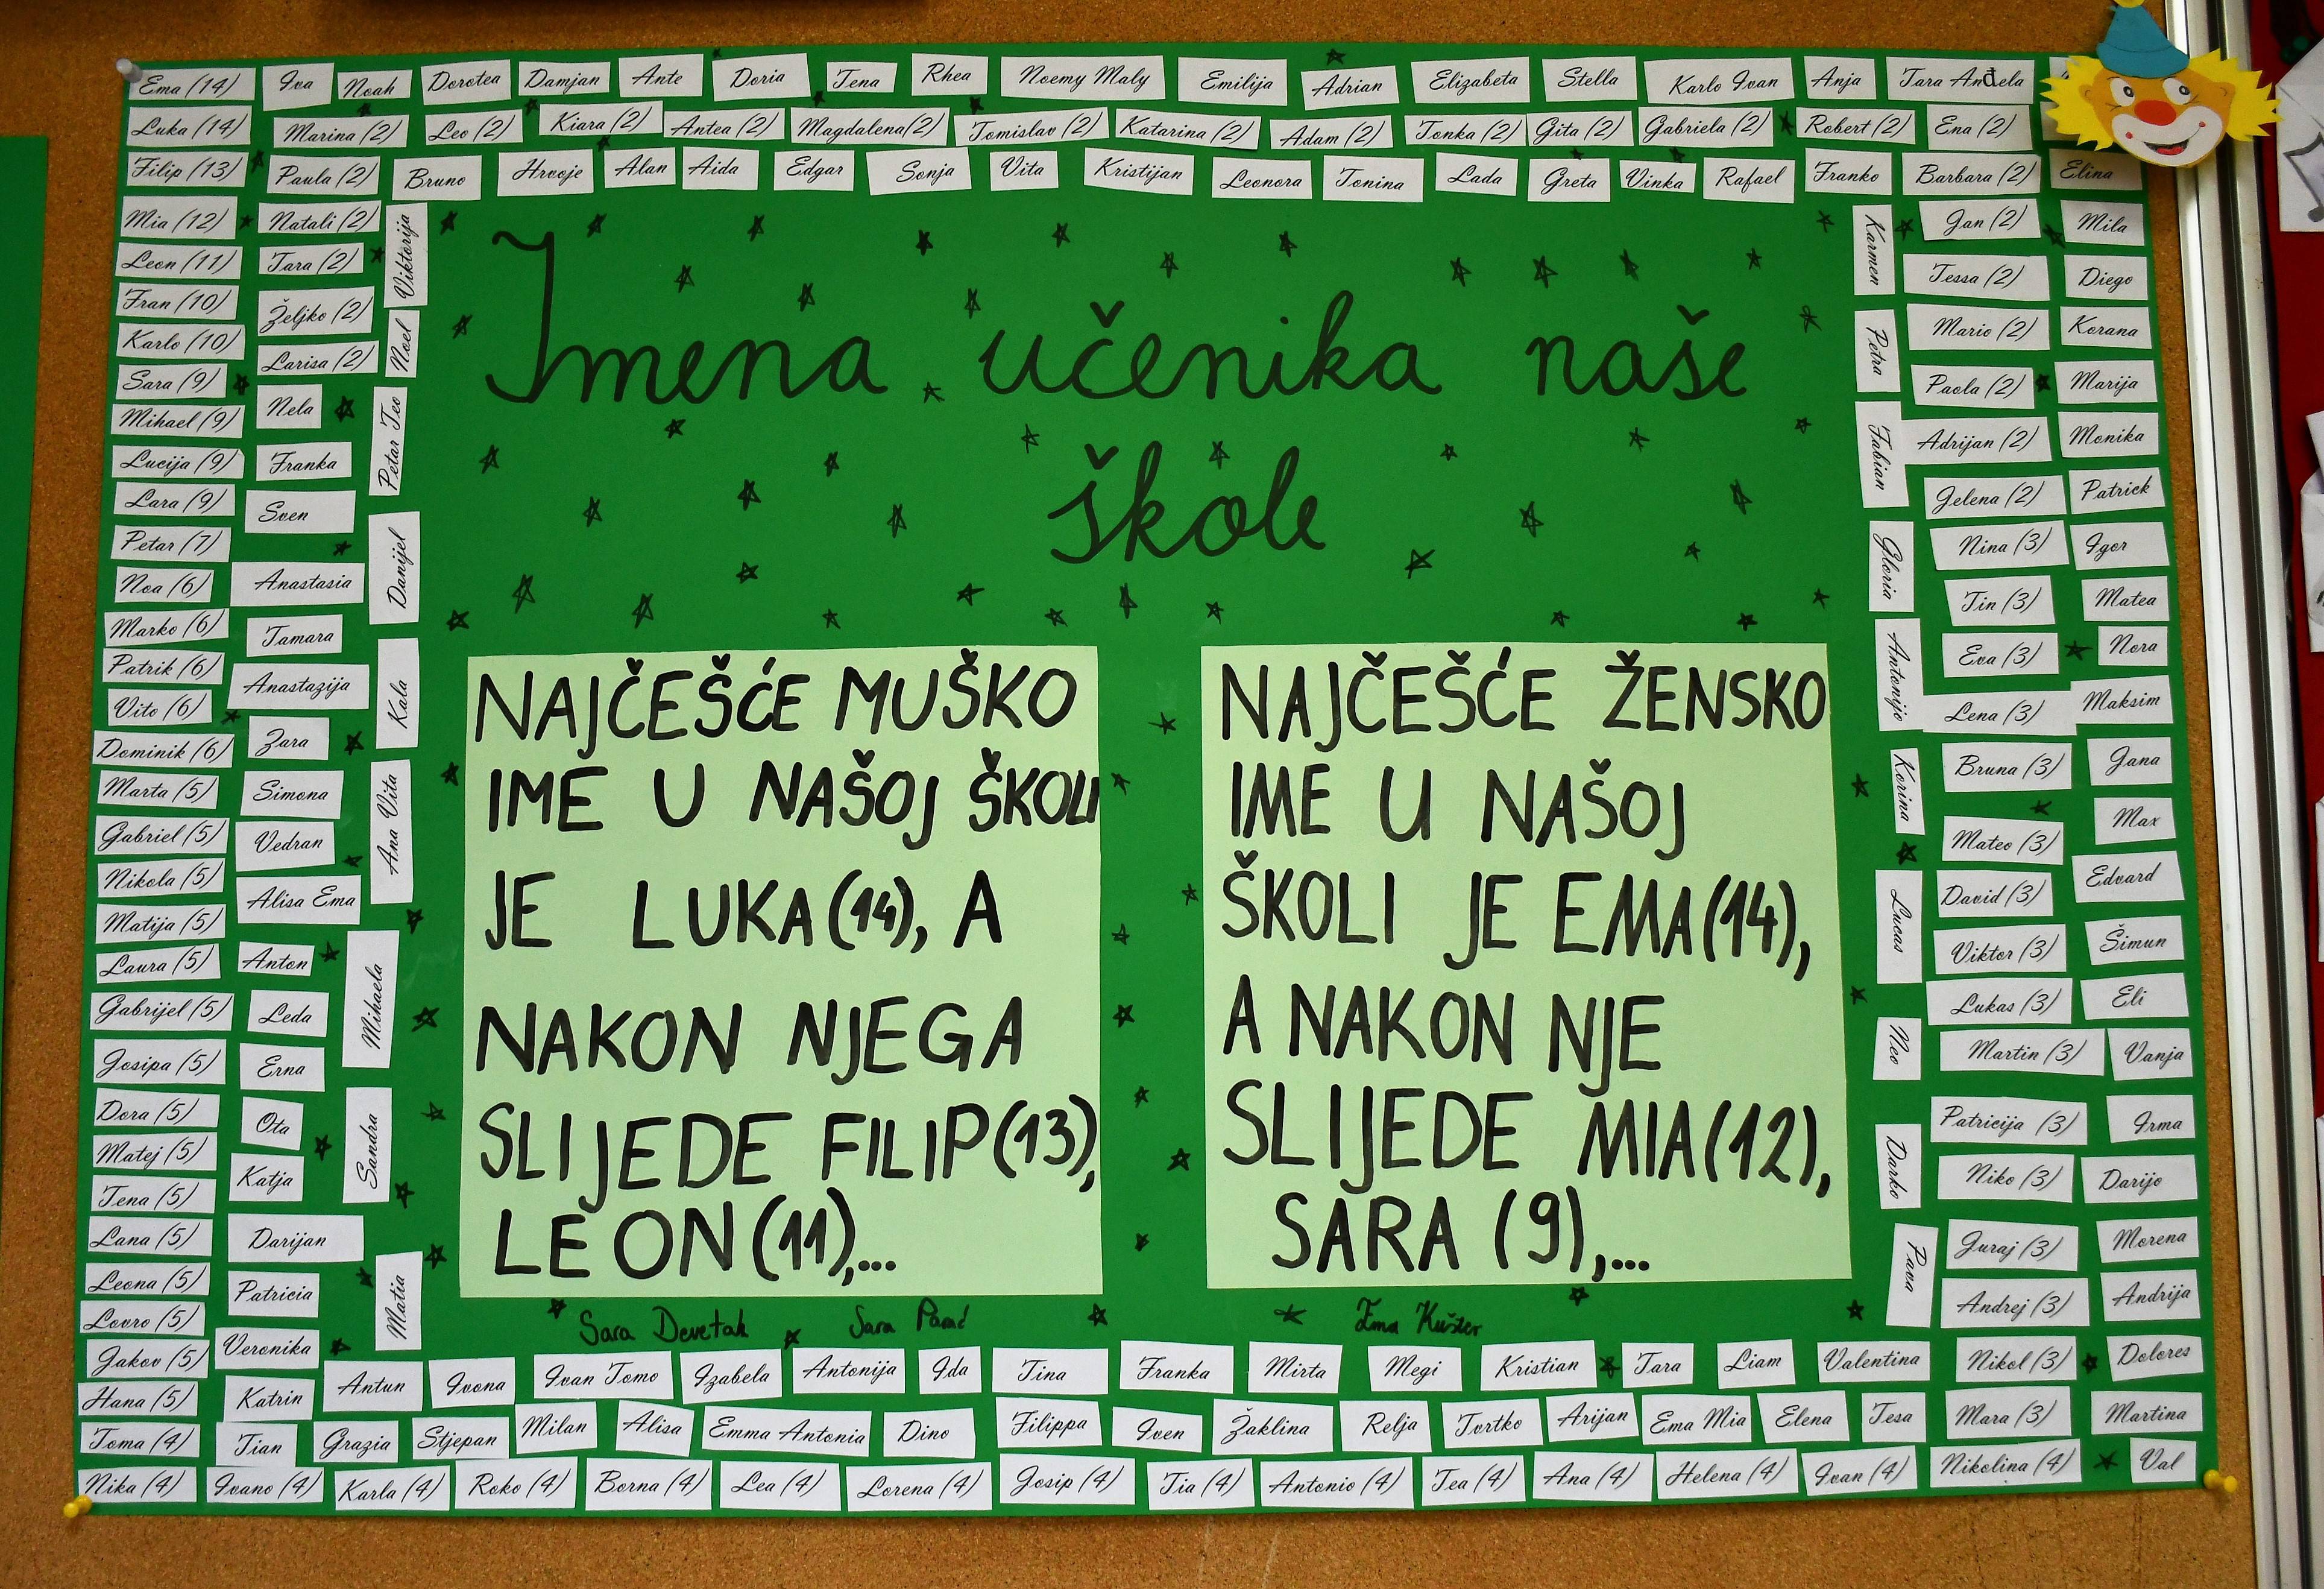 Ema (14) Iva Noah Dorotea Damjan Ante Doria Tena Rhea Noemy Maly Emilija Adrian Elizabeta Stella Karlo Ivan Anja Tara Anđela
Luka (14) Marina (2) Leo (2) Kiara (2) Antea (2) Magdalena(2) Tomislav (2) Katarina (2) Adam (2) Tonka (2) Gita (2) Gabriela (2) Robert (2) Ena (2)
Filip (13) Paula (2) Bruno Hrvoje Alan Aida Edgar Sonja Vita Kristijan Leonora Tonina Lada Greta Vinka Rafael Franko Barbara (2) Elina
Mia (12)
Leon (11)
Fran (10)
Karlo (10)
Sara (9)
Mihael (9)
Lucija (9)
Lara (9)
Petar (7)
Noa (6)
Marko (6)
Patrik (6)
Vito (6)
Dominik (6)
Marta (5)
Gabriel (5)
Nikola (5)
Matija (5)
Laura (5)
Gabrijel (5)
Josipa (5)
Dora (5)
Matej (5)
Tena (5)
Lana (5)
Leona (5)
Lovro (5)
Jakov (5)
Hana (5)
Toma (4)
Natali (2)
Tara (2)
Željko (2)
Larisa (2)
Nela
Franka
Sven
Anastasia
Tamara
Anastazija
Zara
Simona
Vedran
Alisa Ema
Anton
Leda
Erna
Ota
Katja
Darijan
Patricia
Veronika
Katrin
Tian
Viktorija
Noel
Petar Teo
Danijel
Kala
Ana Vita
Mihaela
Sandra
Matia
Imena učenika naše
škole
NAJČEŠĆE MUŠKO
IME U NAŠOJ ŠKOLI
JE LUKA(14), A
NAKON NJEGA
SLIJEDE FILIP(13),
LEON(11),...
NAJČEŠĆE ŽENSKO
IME U NAŠOJ
ŠKOLI JE EMA(14),
A NAKON NJE
SLIJEDE MIA(12),
SARA (9),...
Sara Devetak Sara Ema
Karmen
Petra
Fabian
Gloria
Antonijo
Korina
Lucas
Neo
Darko
Pava
Jan (2)
Tessa (2)
Mario (2)
Paola (2)
Adrijan (2)
Jelena (2)
Nina (3)
Tin (3)
Eva (3)
Lena (3)
Bruna (3)
Mateo (3)
David (3)
Viktor (3)
Lukas (3)
Martin (3)
Patricija (3)
Niko (3)
Juraj (3)
Andrej (3)
Nikol (3)
Mara (3)
Mila
Diego
Korana
Marija
Monika
Patrick
Igor
Matea
Nora
Maksim
Jana
Max
Edvard
Šimun
Eli
Vanja
Irma
Darijo
Morena
Andrija
Dolores
Martina
Antun Ivona Ivan Tomo Izabela Antonija Ida Tina Franka Mirta Megi Kristian Tara Liam Valentina
Grazia Stjepan Milan Alisa Emma Antonia Dino Filippa Iven Žaklina Relja Tvrtko Arijan Ema Mia Elena Tesa
Nika (4) Ivano (4) Karla (4) Roko (4) Borna (4) Lea (4) Lorena (4) Josip (4) Tia (4) Antonio (4) Tea (4) Ana (4) Helena (4) Ivan (4) Nikolina (4) Val